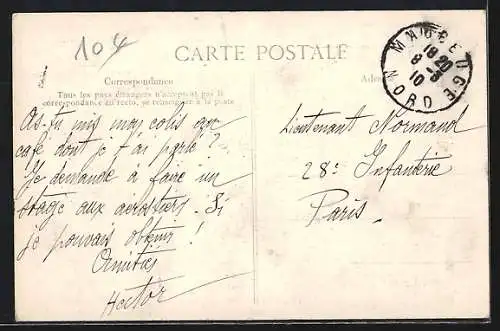 104
CARTE POSTALE
Correspondance
Tous les pays étrangers n'acceptent pas la
correspondance au recto, se renseigner à la poste
As-tu mis mon colis au
café dont je t'ai parlé?
Je demande à faire un
stage aux aerostiers. Si
je pouvais obtenir!
Amitiés
Hector
Adre
MAUBEUGE
18 20
8 -8
10
NORD
Lieutenant Normand
28e Infanterie
Paris.